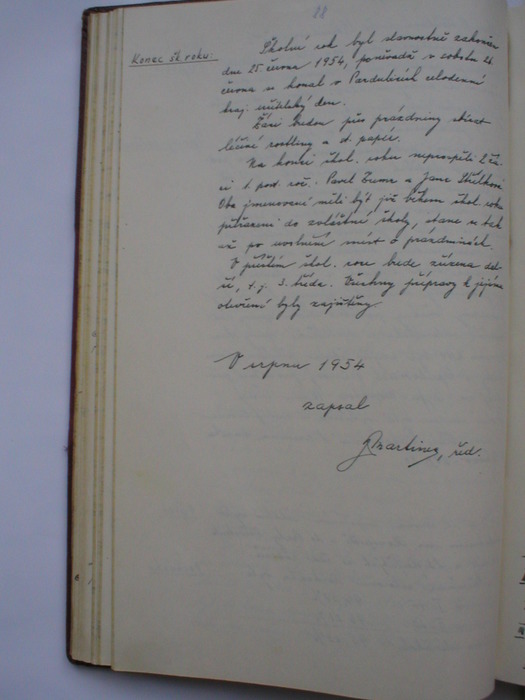 28
Konec šk. roku:
Školní rok byl slavnostně zakončen
dne 25. června 1954, poněvadž v sobotu 26.
června se konal v Pardubicích celodenní
kraj. učitelský den.
Žáci budou přes prázdniny sbírat
léčivé rostliny a st. papír.
Na konci škol. roku neprospěli 2 žá-
ci 1. post. roč.: Pavel a Jana
Oba jmenovaní měli být již během škol. roku
přeřazeni do zvláštní školy, stane se tak
až po uvolnění míst o prázdninách.
V příštím škol. roce bude zřízena dal-
ší, t.j. 3. třída. Všechny přípravy k jejímu
otevření byly zajištěny.
V srpnu 1954
zapsal
Martinec, řed.